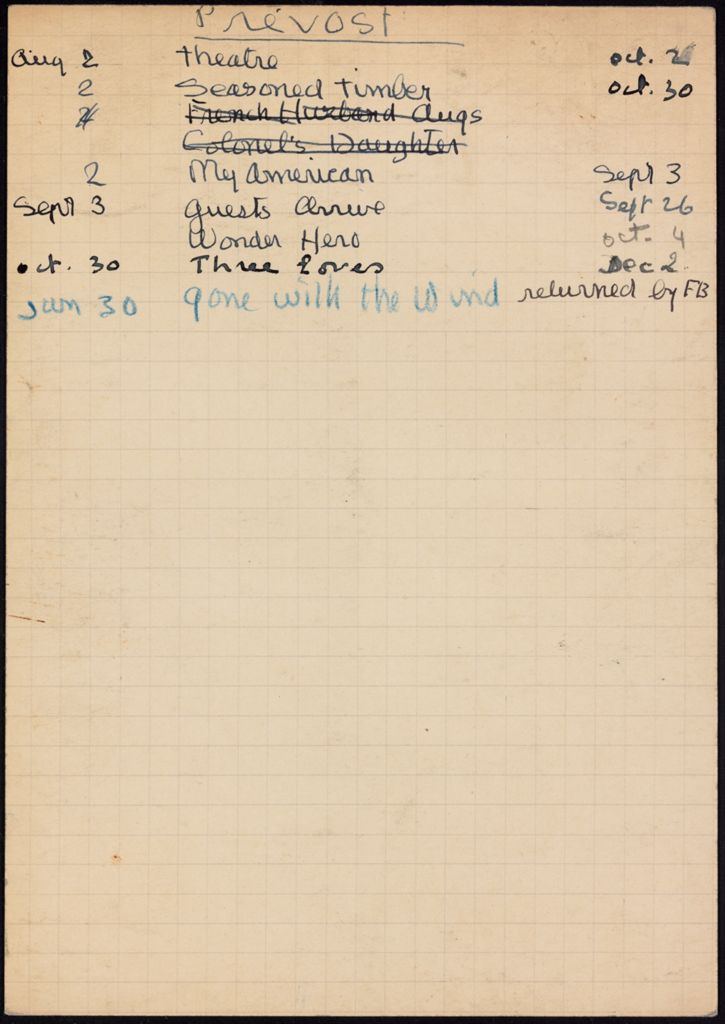 Prévost
Aug 2 Theatre oct. 2
2 Seasoned Timber oct. 30
2 French Husband Augs
Colonel's Daughter
2 My American Sept 3
Sept 3 Guests Arrive Sept 26
Wonder Hero oct. 4
oct. 30 Three Loves Dec 2.
Jan 30 Gone with the Wind returned by FB